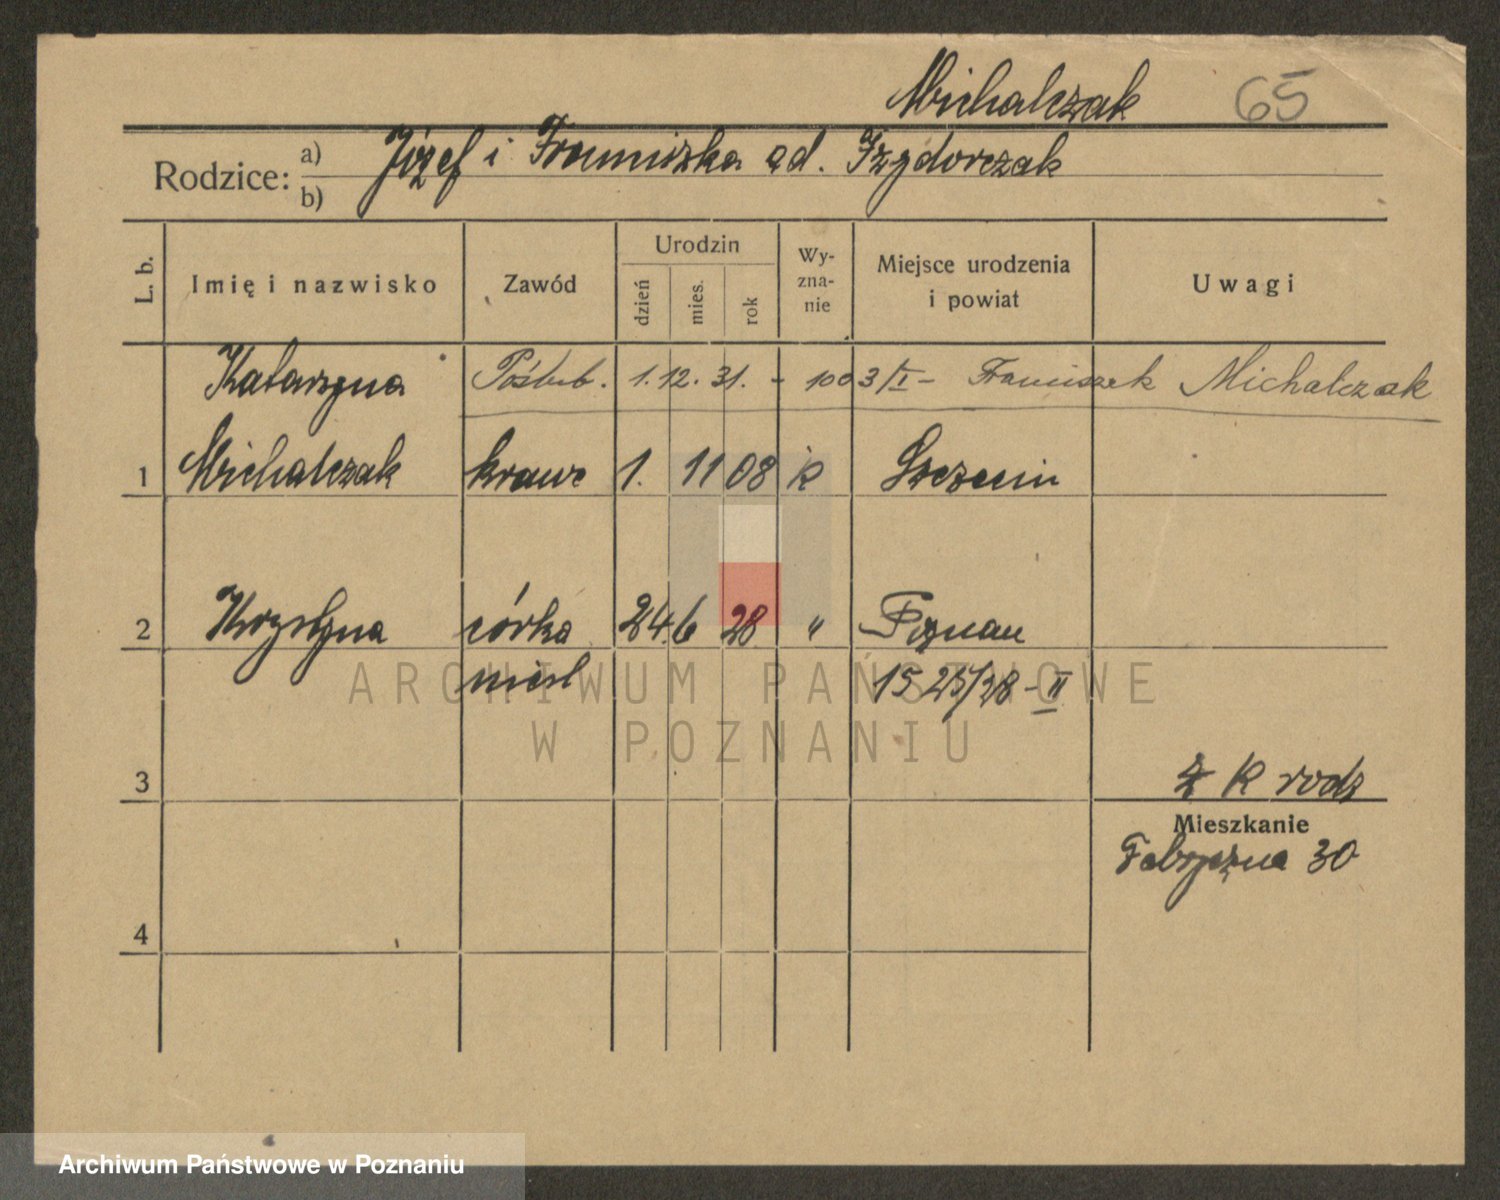 Michalczak 65
Rodzice: a) Józef i Franciszka od. Izydorczak
b)
L. b. Imię i nazwisko Zawód Urodzin dzień mies. rok Wyznanie Miejsce urodzenia i powiat Uwagi
Katarzyna Poślub. 1.12.31. - 1003/I - Franciszek Michalczak
1 Michalczak krawc 1. 11 08 k Szczecin
2 Krystyna córka 24. 6 28 " Poznan
nieśl 1525/28-II
3 z K rodz
Mieszkanie
Fabryczna 30
4
ARCHIWUM PAŃSTWOWE
W POZNANIU
Archiwum Państwowe w Poznaniu